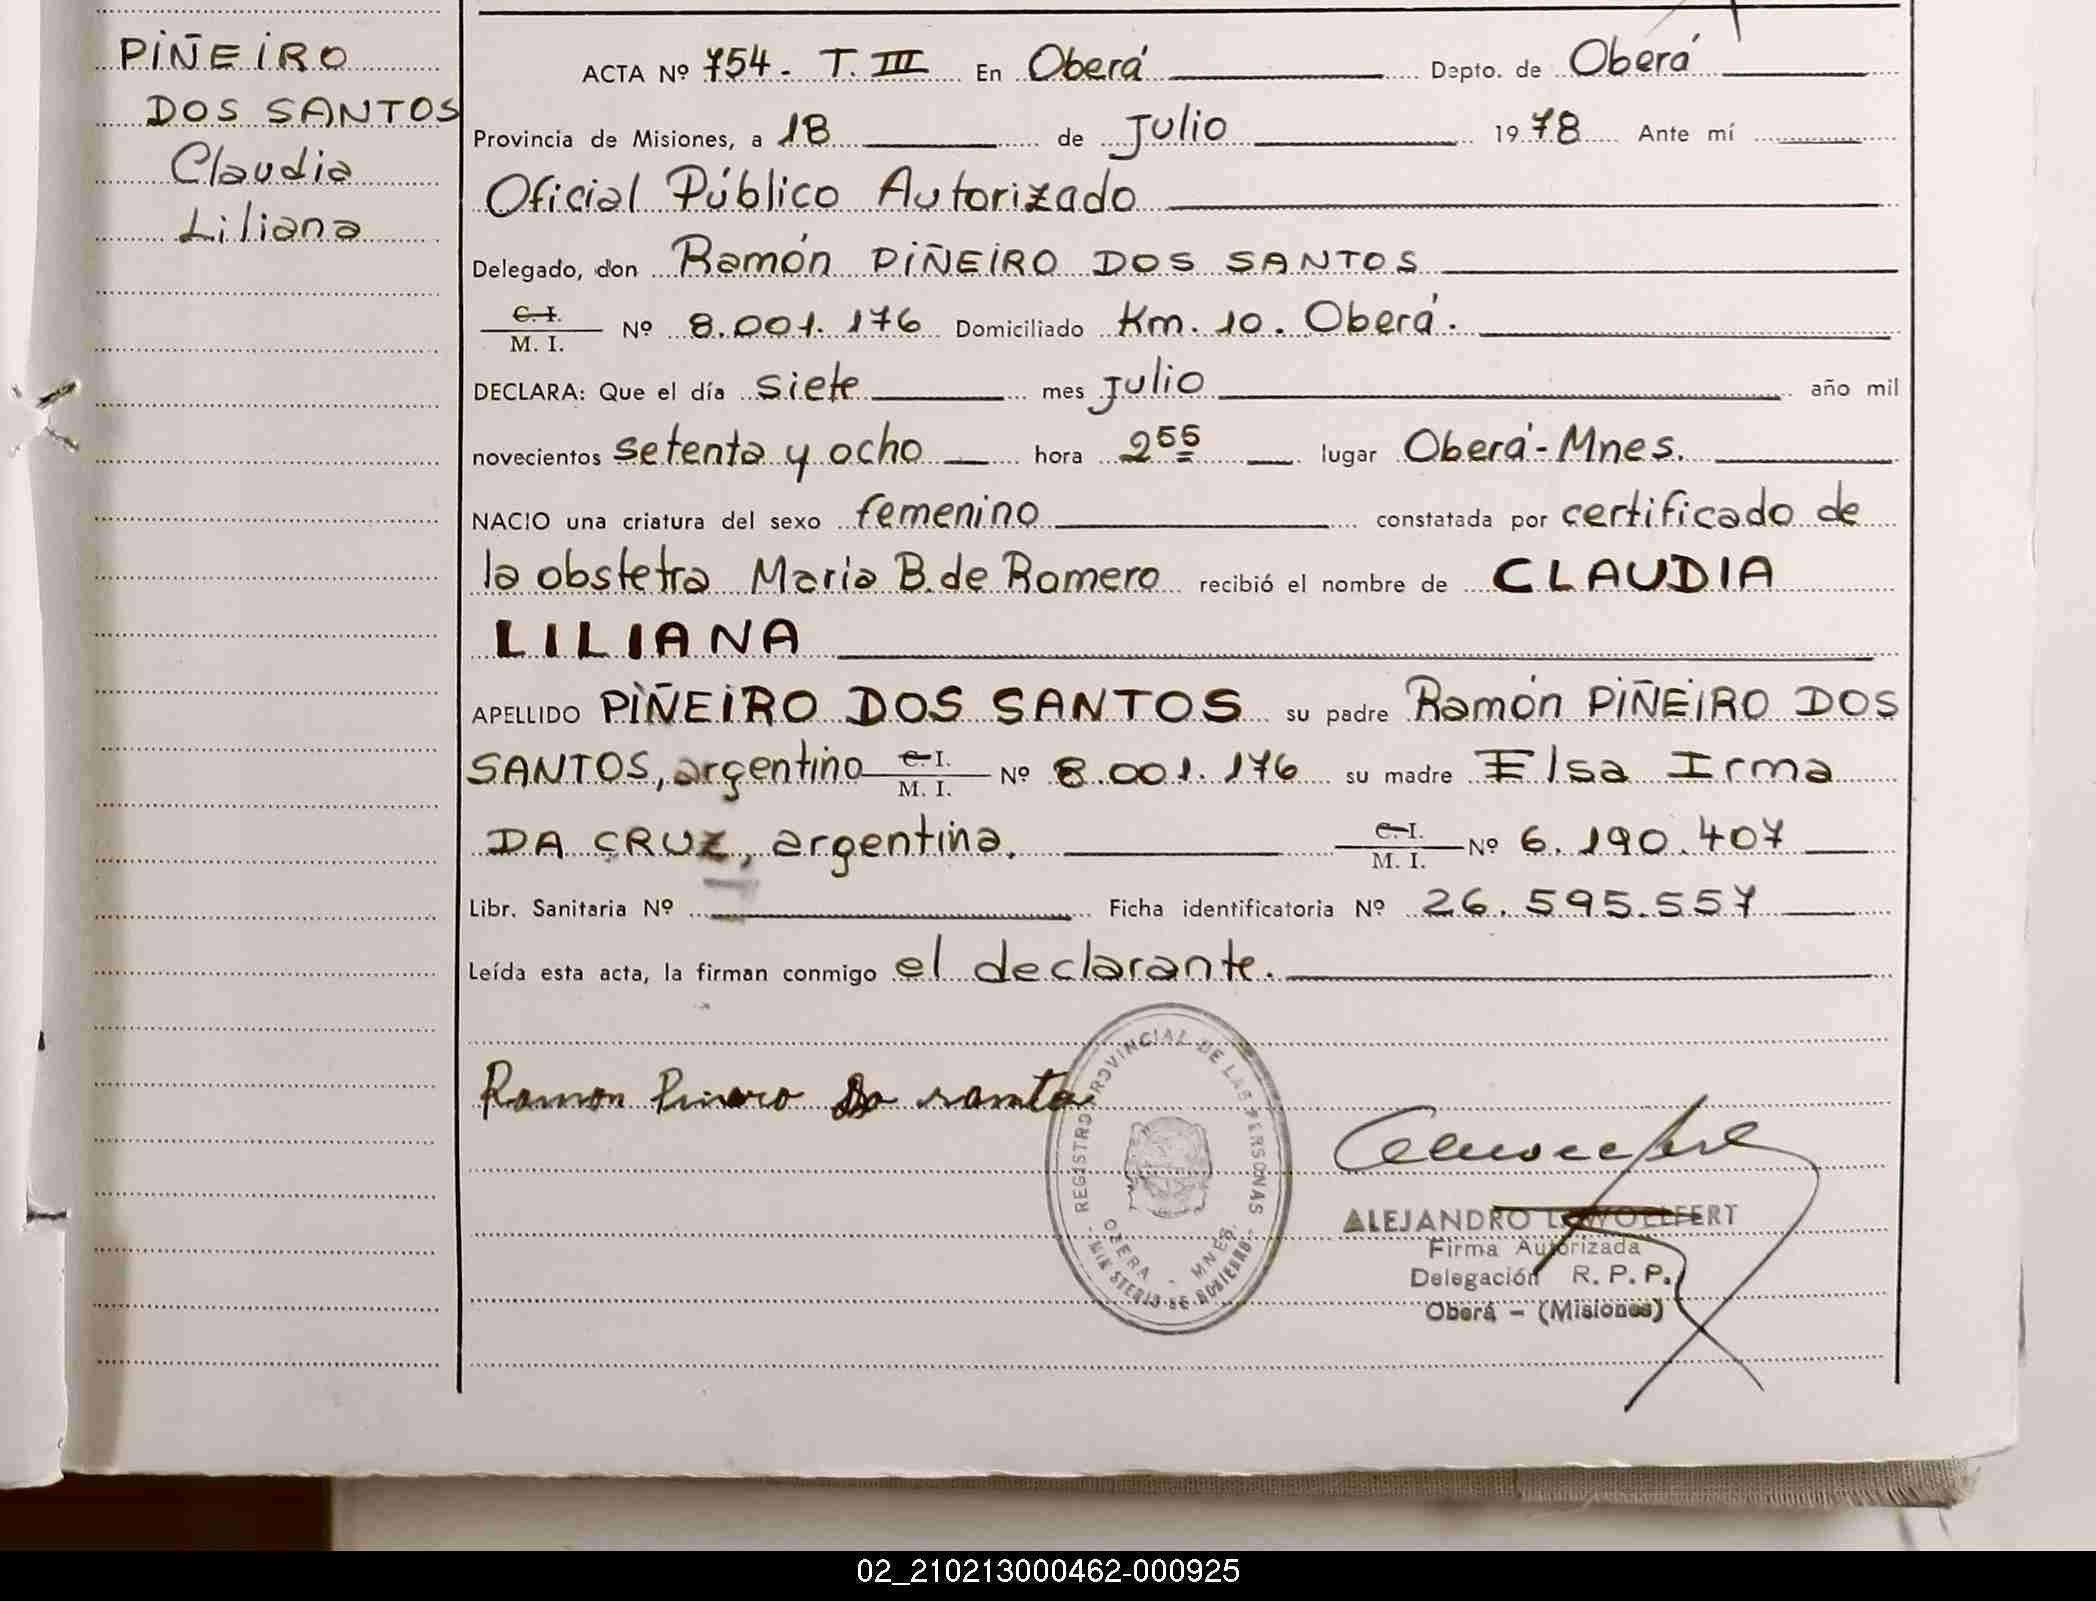 PIÑEIRO
DOS SANTOS
Claudia
Liliana
ACTA Nº 754. T. III En Oberá Depto. de Oberá
Provincia de Misiones, a 18 de Julio 1978 Ante mí
Oficial Público Autorizado
Delegado, don Ramón PIÑEIRO DOS SANTOS
C. I.
M. I. Nº 8.001.176 Domiciliado Km. 10. Oberá.
DECLARA: Que el día siete mes julio año mil
novecientos setenta y ocho hora 2 55 lugar Oberá-Mnes.
NACIO una criatura del sexo femenino constatada por certificado de
la obstetra Maria B. de Romero recibió el nombre de CLAUDIA
LILIANA
APELLIDO PIÑEIRO DOS SANTOS su padre Ramón PIÑEIRO DOS
SANTOS, argentino C. I. M. I. Nº 8.001.176 su madre Elsa Irma
DA CRUZ, argentina. C. I. M. I. Nº 6.190.407
Libr. Sanitaria Nº Ficha identificatoria Nº 26.595.557
Leída esta acta, la firman conmigo el declarante.
Ramon
REGISTRO PROVINCIAL DE LAS PERSONAS
OBERA - MNES.
MINISTERIO DE GOBIERNO
ALEJANDRO L. WOELFERT
Firma Autorizada
Delegación R. P. P.
Oberá - (Misiones)
02_210213000462-000925